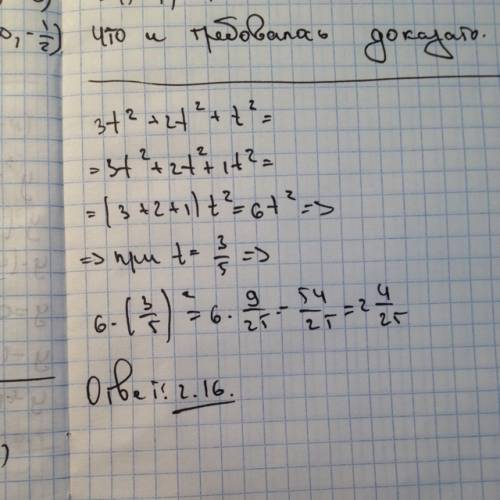 0, -1/2) Что и требовалась доказать.
3t² + 2t² + t² =
= 3t² + 2t² + 1t² =
= (3+2+1) t² = 6t² =>
=> при t = 3/5 =>
6 · (3/5)² = 6 · 9/25 = 54/25 = 2 4/25
Ответ: 2.16.
)